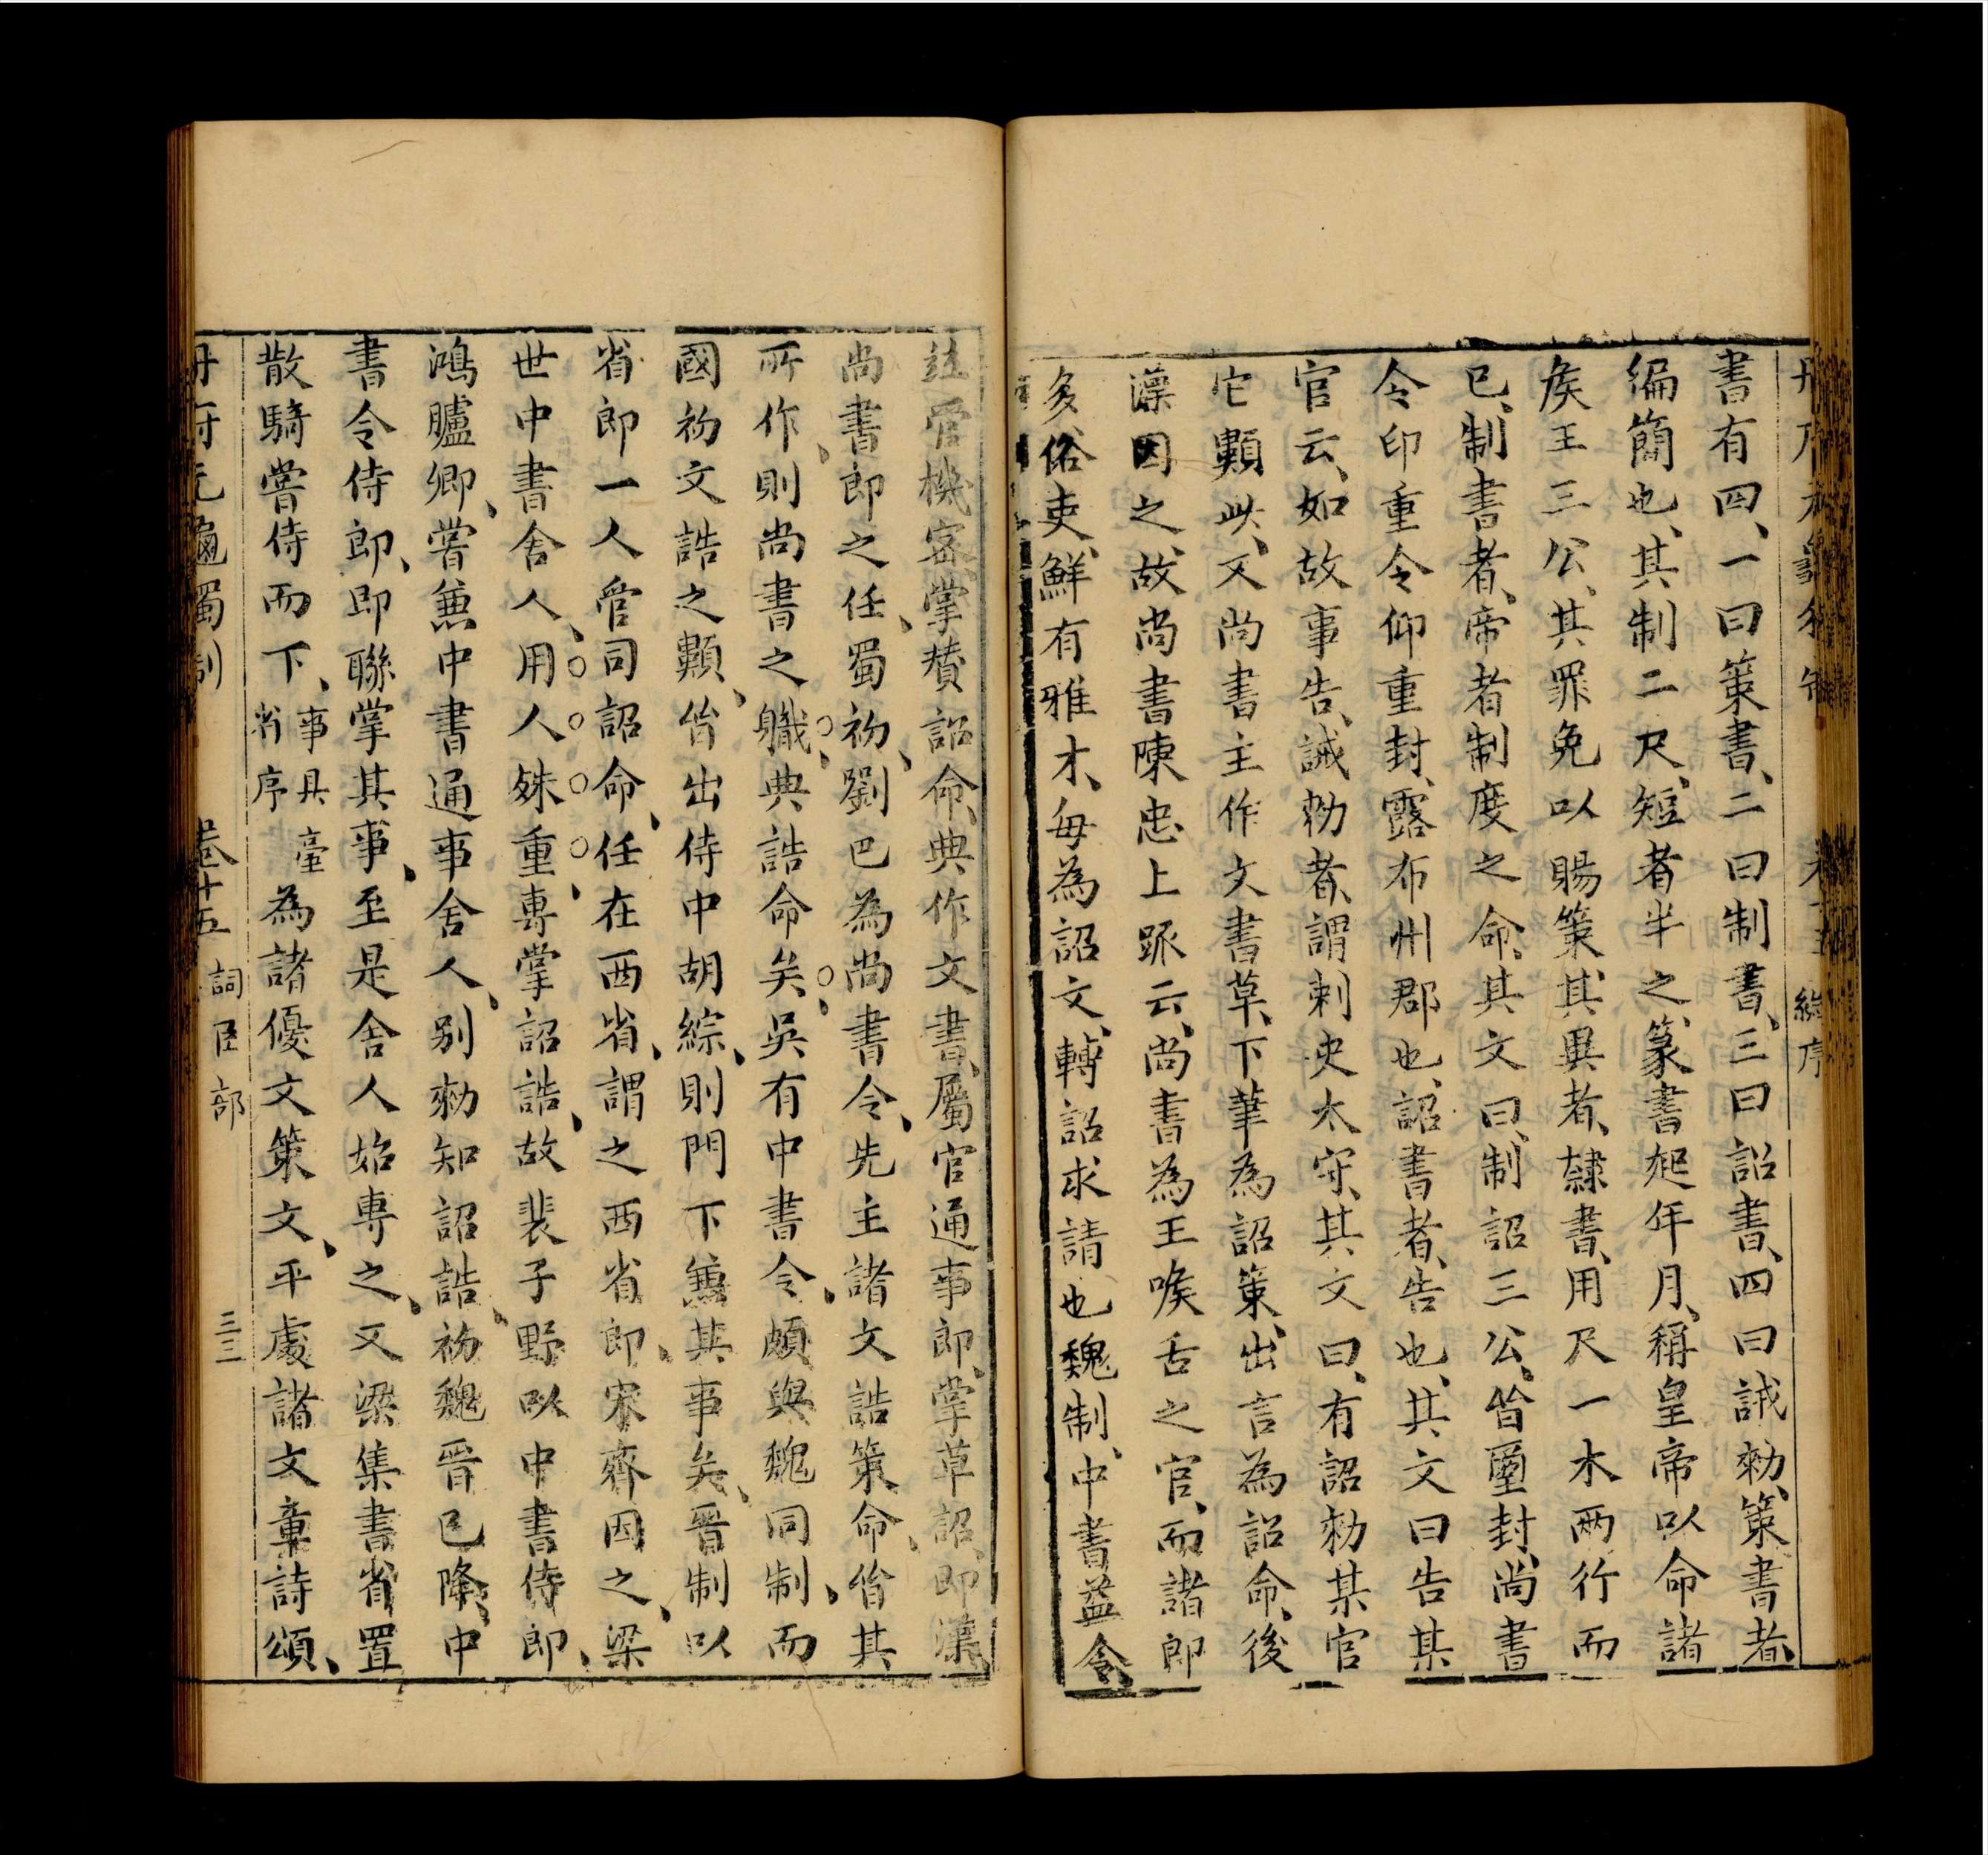 書有四、一曰策書、二曰制書、三曰詔書、四曰誡勑、策書者、
編簡也、其制二尺、短者半之、篆書起年月、稱皇帝以命諸
矦王三公、其罪免以賜策、其異者、隸書、用尺一木兩行而
已、制書者、帝者制度之命、其文曰、制詔三公、皆璽封、尚書
令印重令仰重封、露布州郡也、詔書者、告也、其文曰告某
官云、如故事告、誡勑者、謂刺史太守、其文曰、有詔勑某官
它顆此、又尚書主作文書草、下筆為詔策、出言為詔命、後
漢因之、故尚書陳忠上疏云、尚書為王喉舌之官、而諸郎
多俗吏、鮮有雅才、每為詔文、轉詔求請也魏制、中書益令、
並管機密、掌贊詔命、典作文書、屬官通事郎、掌草詔、即漢、
尚書郎之任、蜀初、劉巴為尚書令、先主諸文誥策命、皆其
所作、則尚書之職、典誥命矣、吳有中書令、頗與魏同制、而
國初文誥之顆、皆出侍中胡綜、則門下兼其事矣、晉制以
省郎一人管司詔命、任在西省、謂之西省郎、宋齊因之、梁
世中書舍人、用人殊重、專掌詔誥、故裴子野以中書侍郎、
鴻臚卿、嘗兼中書通事舍人、別勑知詔誥、初魏晉已降、中
書令侍郎、即聯掌其事、至是舍人始專之、又梁集書省置
散騎嘗侍而下、事具臺省序為諸優文策文、平處諸文章詩頌、
冊府元龜獨制 卷十五 詞臣部 三三